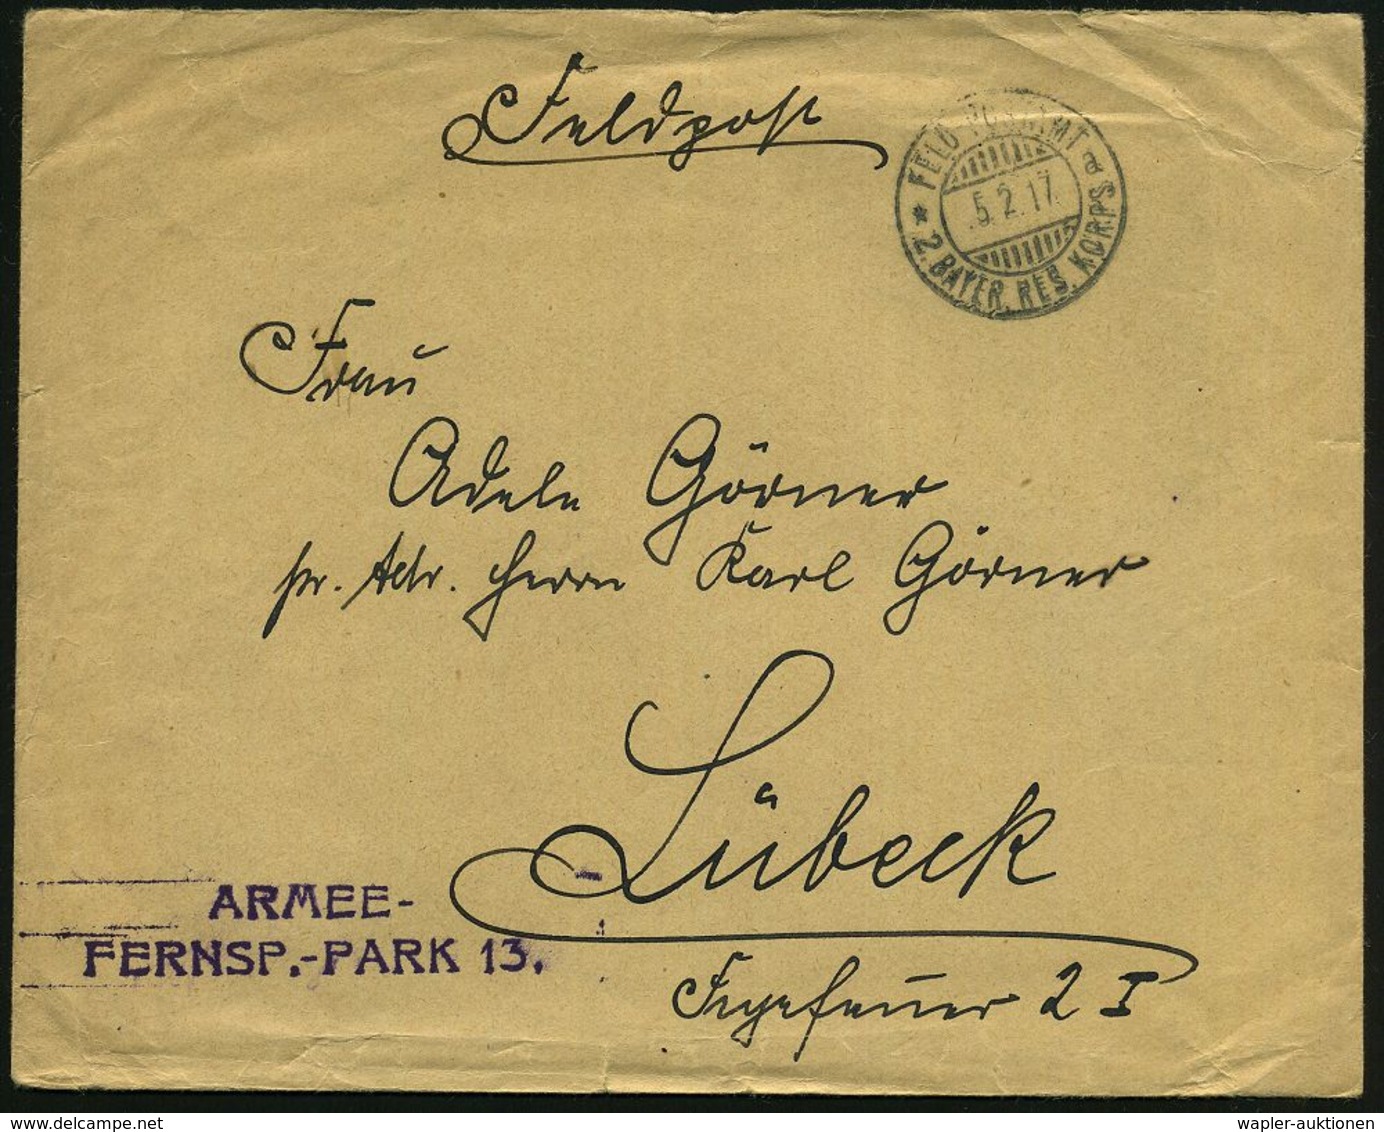 Feldpost
FELD-POSTAMT a
5.2.17.
* 2. BAYER. RES. KORPS
Frau
Adele Görner
pr. Adr. Herrn Karl Görner
Lübeck
Fegefeuer 2 I
ARMEE-
FERNSP.-PARK 13.
wapler-auktionen